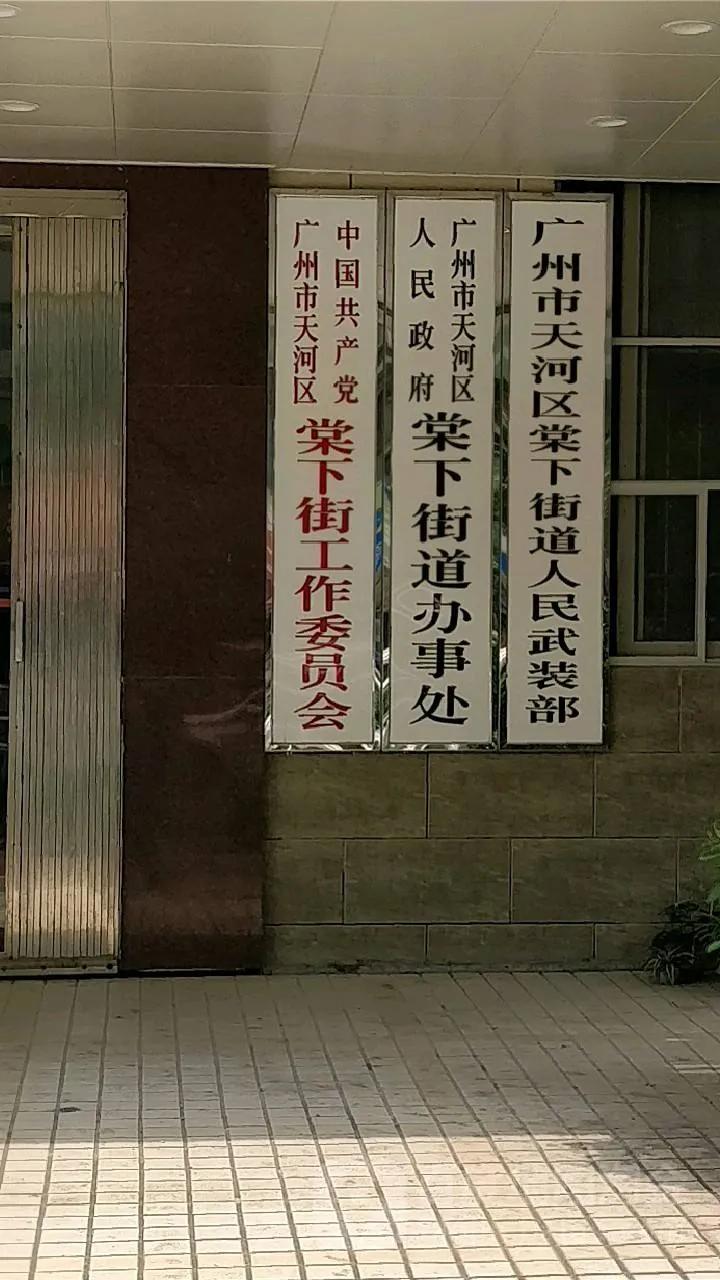 中国共产党
广州市天河区
棠下街工作委员会
广州市天河区
人民政府
棠下街道办事处
广州市天河区棠下街道人民武装部